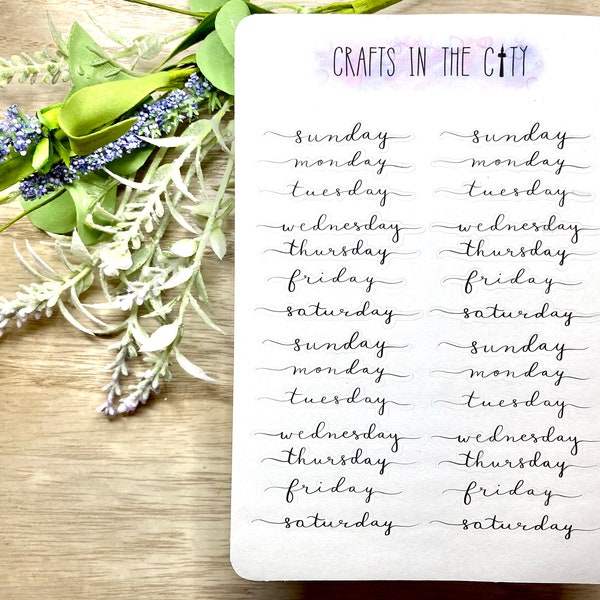 CRAFTS IN THE CITY
sunday sunday
monday monday
tuesday tuesday
wednesday wednesday
thursday thursday
friday friday
saturday saturday
sunday sunday
monday monday
tuesday tuesday
wednesday wednesday
thursday thursday
friday friday
saturday saturday